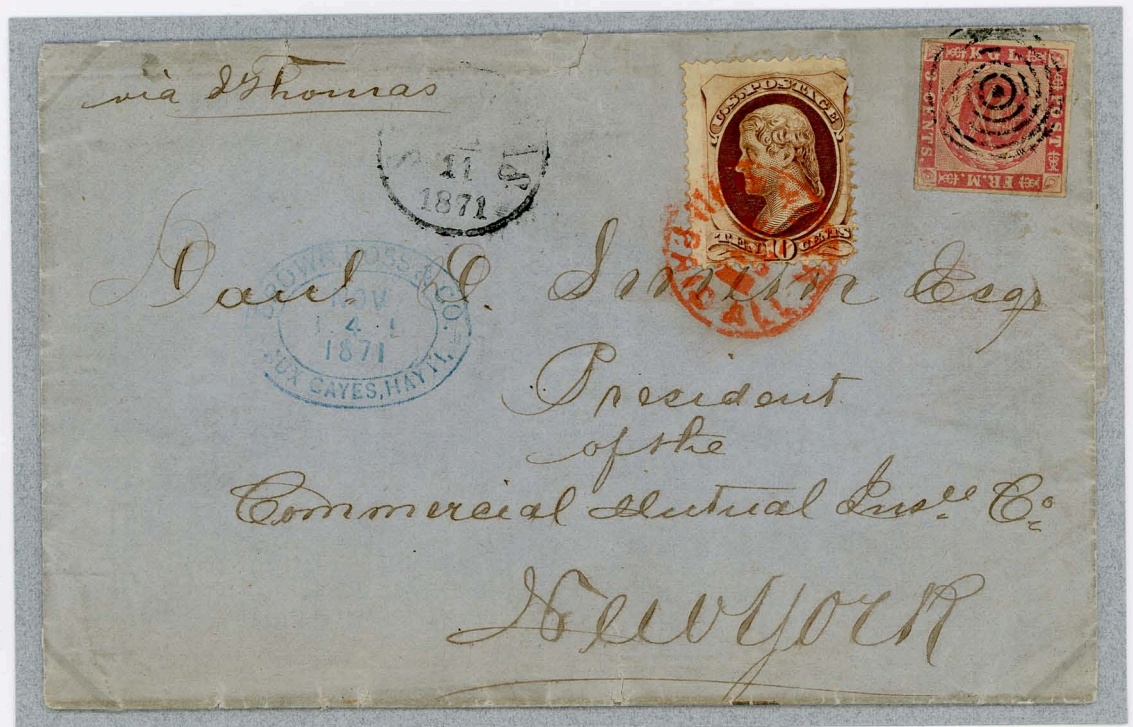 via St Thomas
11
1871
U.S. POSTAGE
TEN 10 CENTS
KGL.
POST
FR.M.
3 CENTS.
BROWN ROSS & CO.
NOV
1871
AUX CAYES, HAYTI.
ALL
Esqr
President
of the
Commercial Mutual Insce Co.
New York